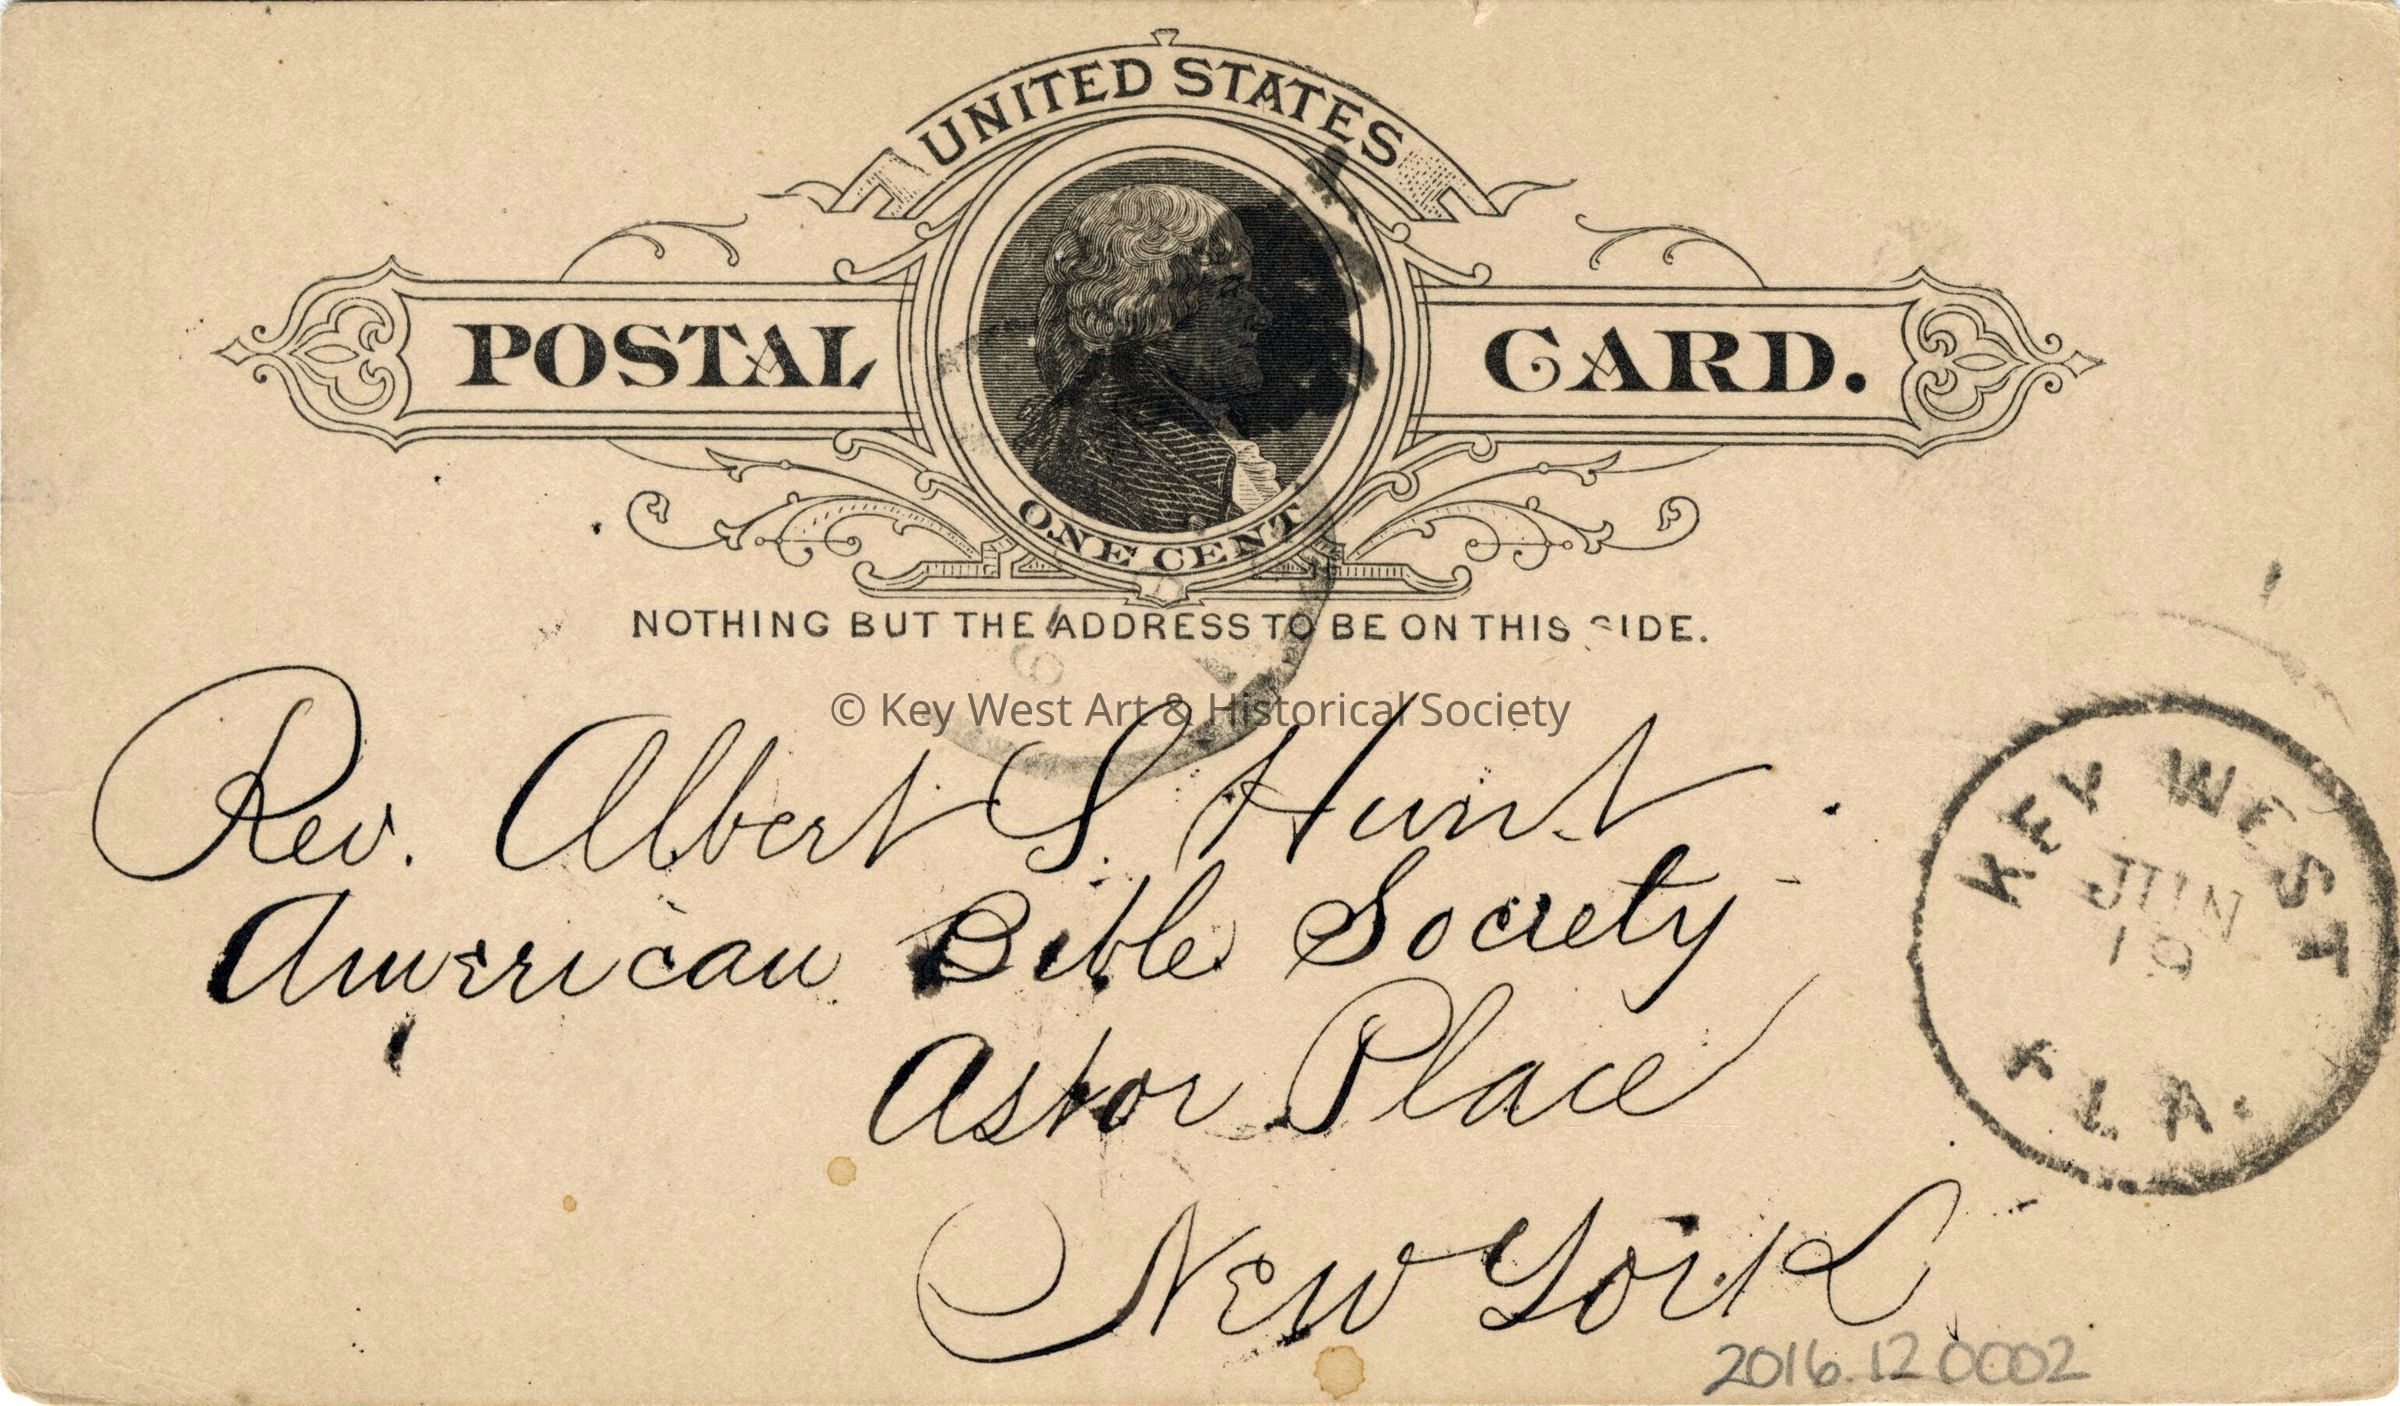 UNITED STATES
POSTAL CARD.
ONE CENT
NOTHING BUT THE ADDRESS TO BE ON THIS SIDE.
© Key West Art & Historical Society
Rev. Albert S. Hunt
American Bible Society
Astor Place
New York
KEY WEST
JUN
FLA.
2016.12 0002